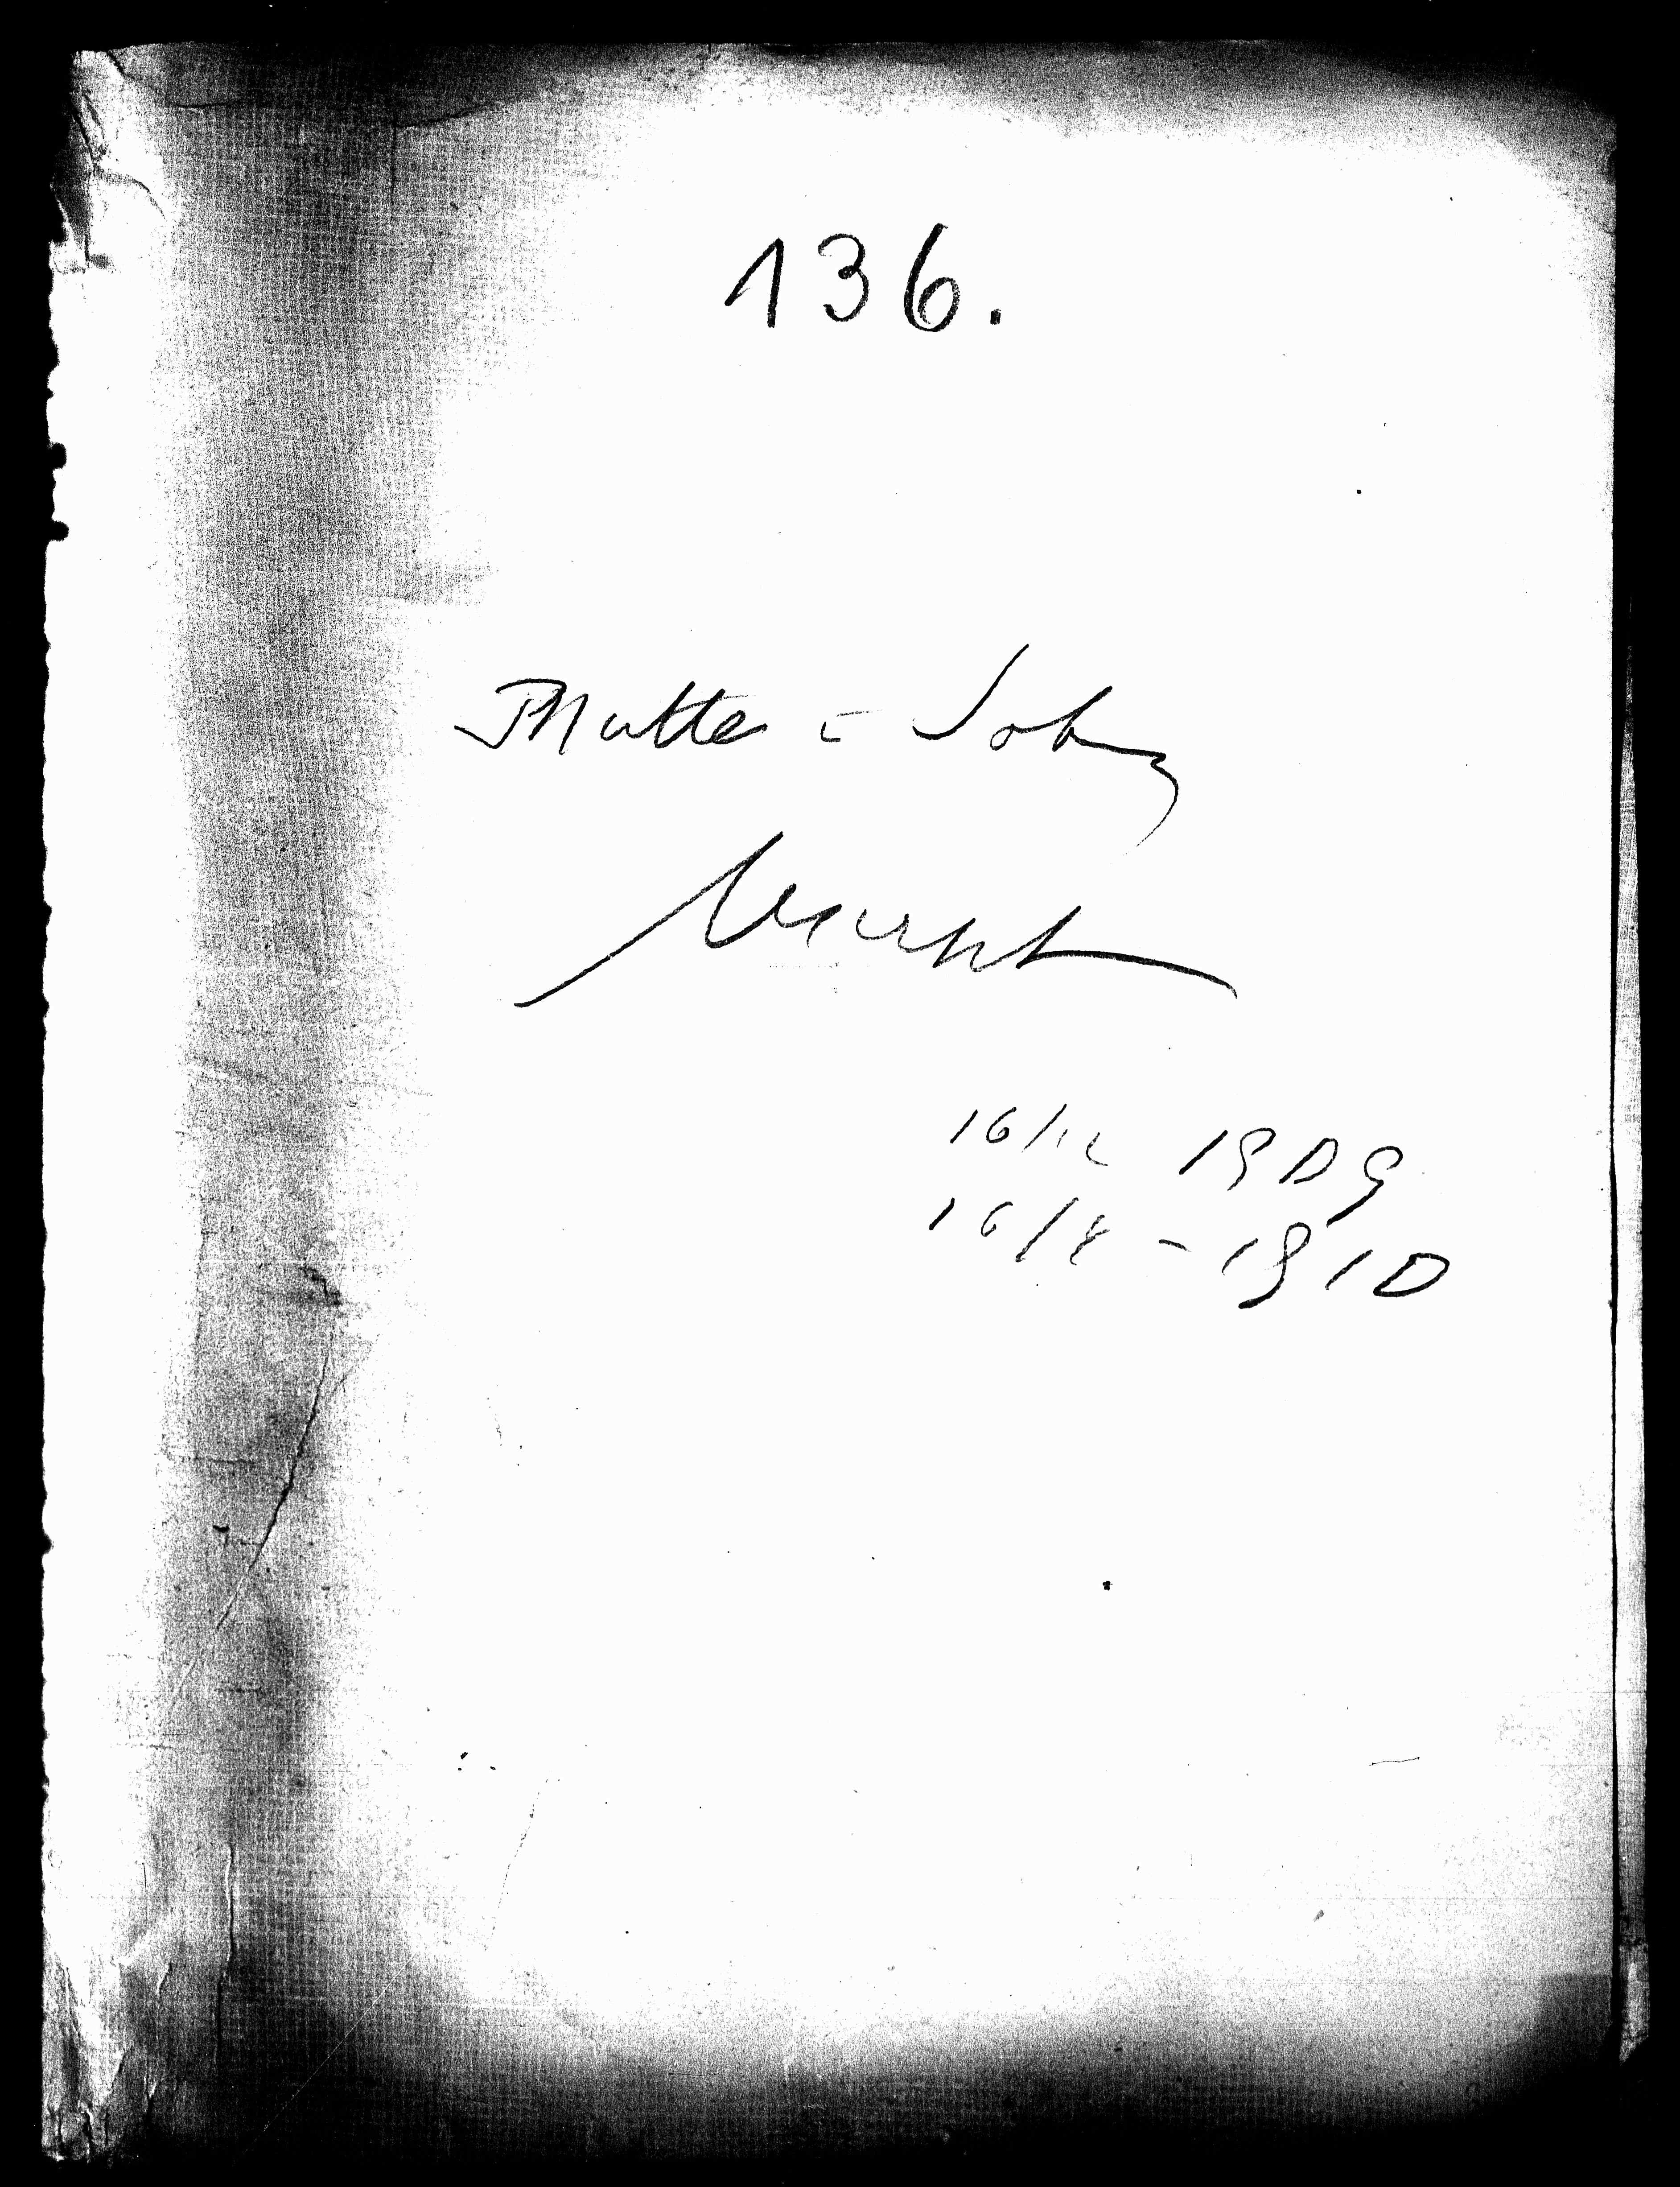 136.
Mutter - Sohn
16/12 1909
16/8 - 1910